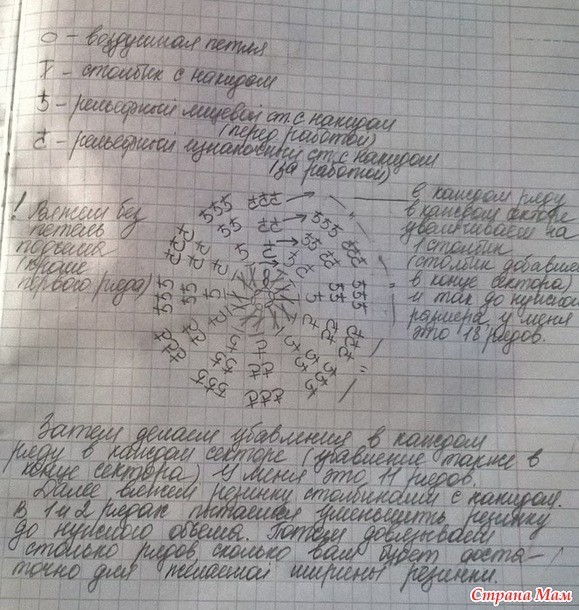 о - воздушная петля
- столбик с накидом
- рельефный лицевой ст. с накидом
(перед работой)
- рельефный изнаночный ст. с накидом
(за работой)
! Вяжем без
петель
подъема
(кроме
первого ряда)
в каждом ряду
в каждом секторе
увеличиваем на
1 столбик
(столбик добавля
в конце сектора)
и так до нужного
размера, у меня
это 18 рядов.
Затем делаем убавления в каждом
ряду в каждом секторе (убавление также в
конце сектора) У меня это 11 рядов.
Далее вяжем резинку столбиками с накидом.
В 1 и 2 рядах пытаемся уменьшить резинку
до нужного объема. Потом довязываем
столько рядов, сколько вам будет доста-
точно для желаемой ширины резинки.
Страна Мам